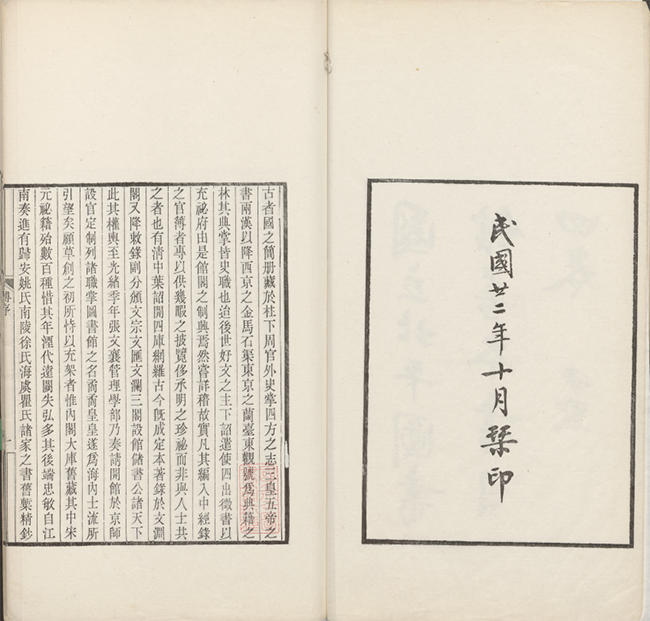 民國廿二年十月琹印
古者國之簡册藏於柱下周官外史掌四方之志三皇五帝之
書兩漢以降西京之金馬石渠東京之蘭臺東觀號爲典籍之
林其典掌皆史職也迨後世好文之主下詔遣使四出徵書以
充祕府由是館閣之制興焉然嘗詳稽故實凡其編入中經錄
之官簿者專以供幾暇之披覽侈承明之珍祕而非與人士共
之者也有清中葉詔開四庫網羅古今旣成定本著錄於文淵
閣又降敕錄副分頒文宗文匯文瀾三閣設館儲書公諸天下
此其權輿至光緒季年張文襄管理學部乃奏請開館於京師
設官定制列諸職掌圖書館之名喬喬皇皇遂爲海內士流所
引望矣顧草創之初所恃以充架者惟內閣大庫舊藏其中宋
元祕籍殆數百種惜其年湮代遠闕失弘多其後端忠敏自江
南奏進有歸安姚氏南陵徐氏海虞瞿氏諸家之書舊槧精鈔
序
一